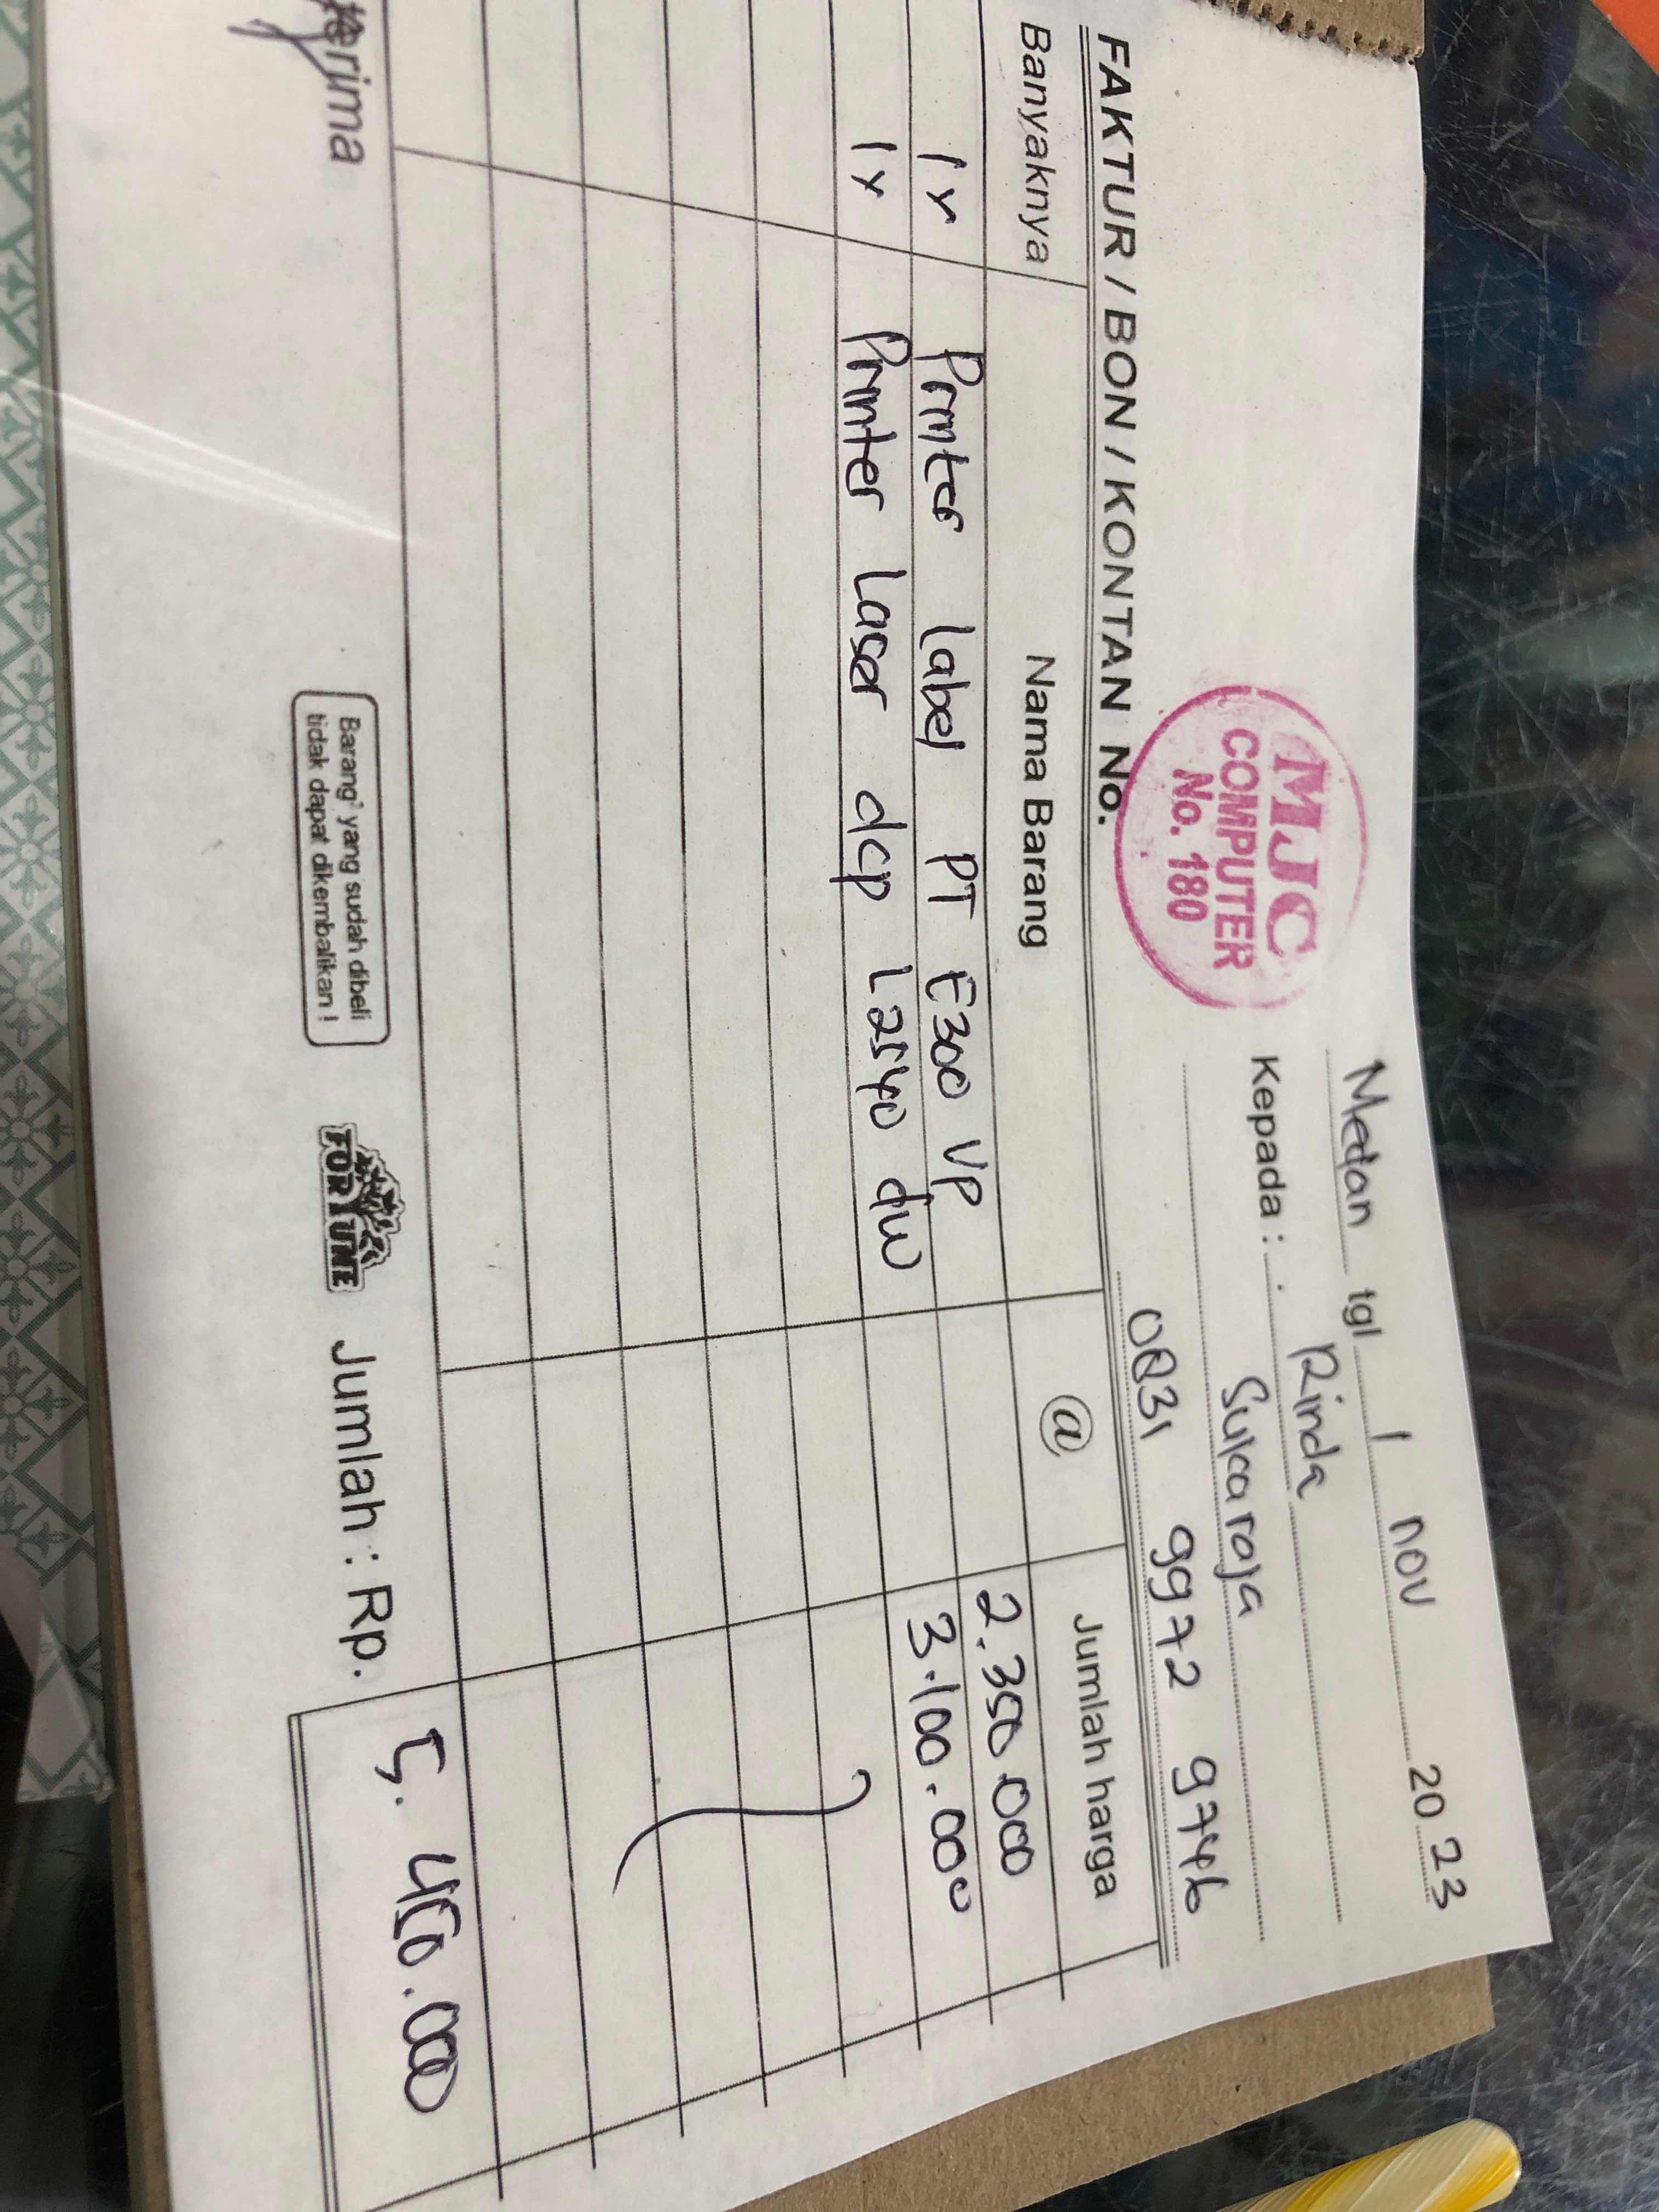 Medan tgl 1 nov 20 23
Kepada : Rinda
Sukaraja
0831 9972 9746
MJC
COMPUTER
No. 180
FAKTUR / BON / KONTAN No.
Banyaknya Nama Barang @ Jumlah harga
1 x Printer label PT E300 VP 2.350.000
1 x Printer Laser dcp L2540 dw 3.100.000
terima
Barang² yang sudah dibeli
tidak dapat dikembalikan !
FORTUNE
Jumlah : Rp. 5.450.000